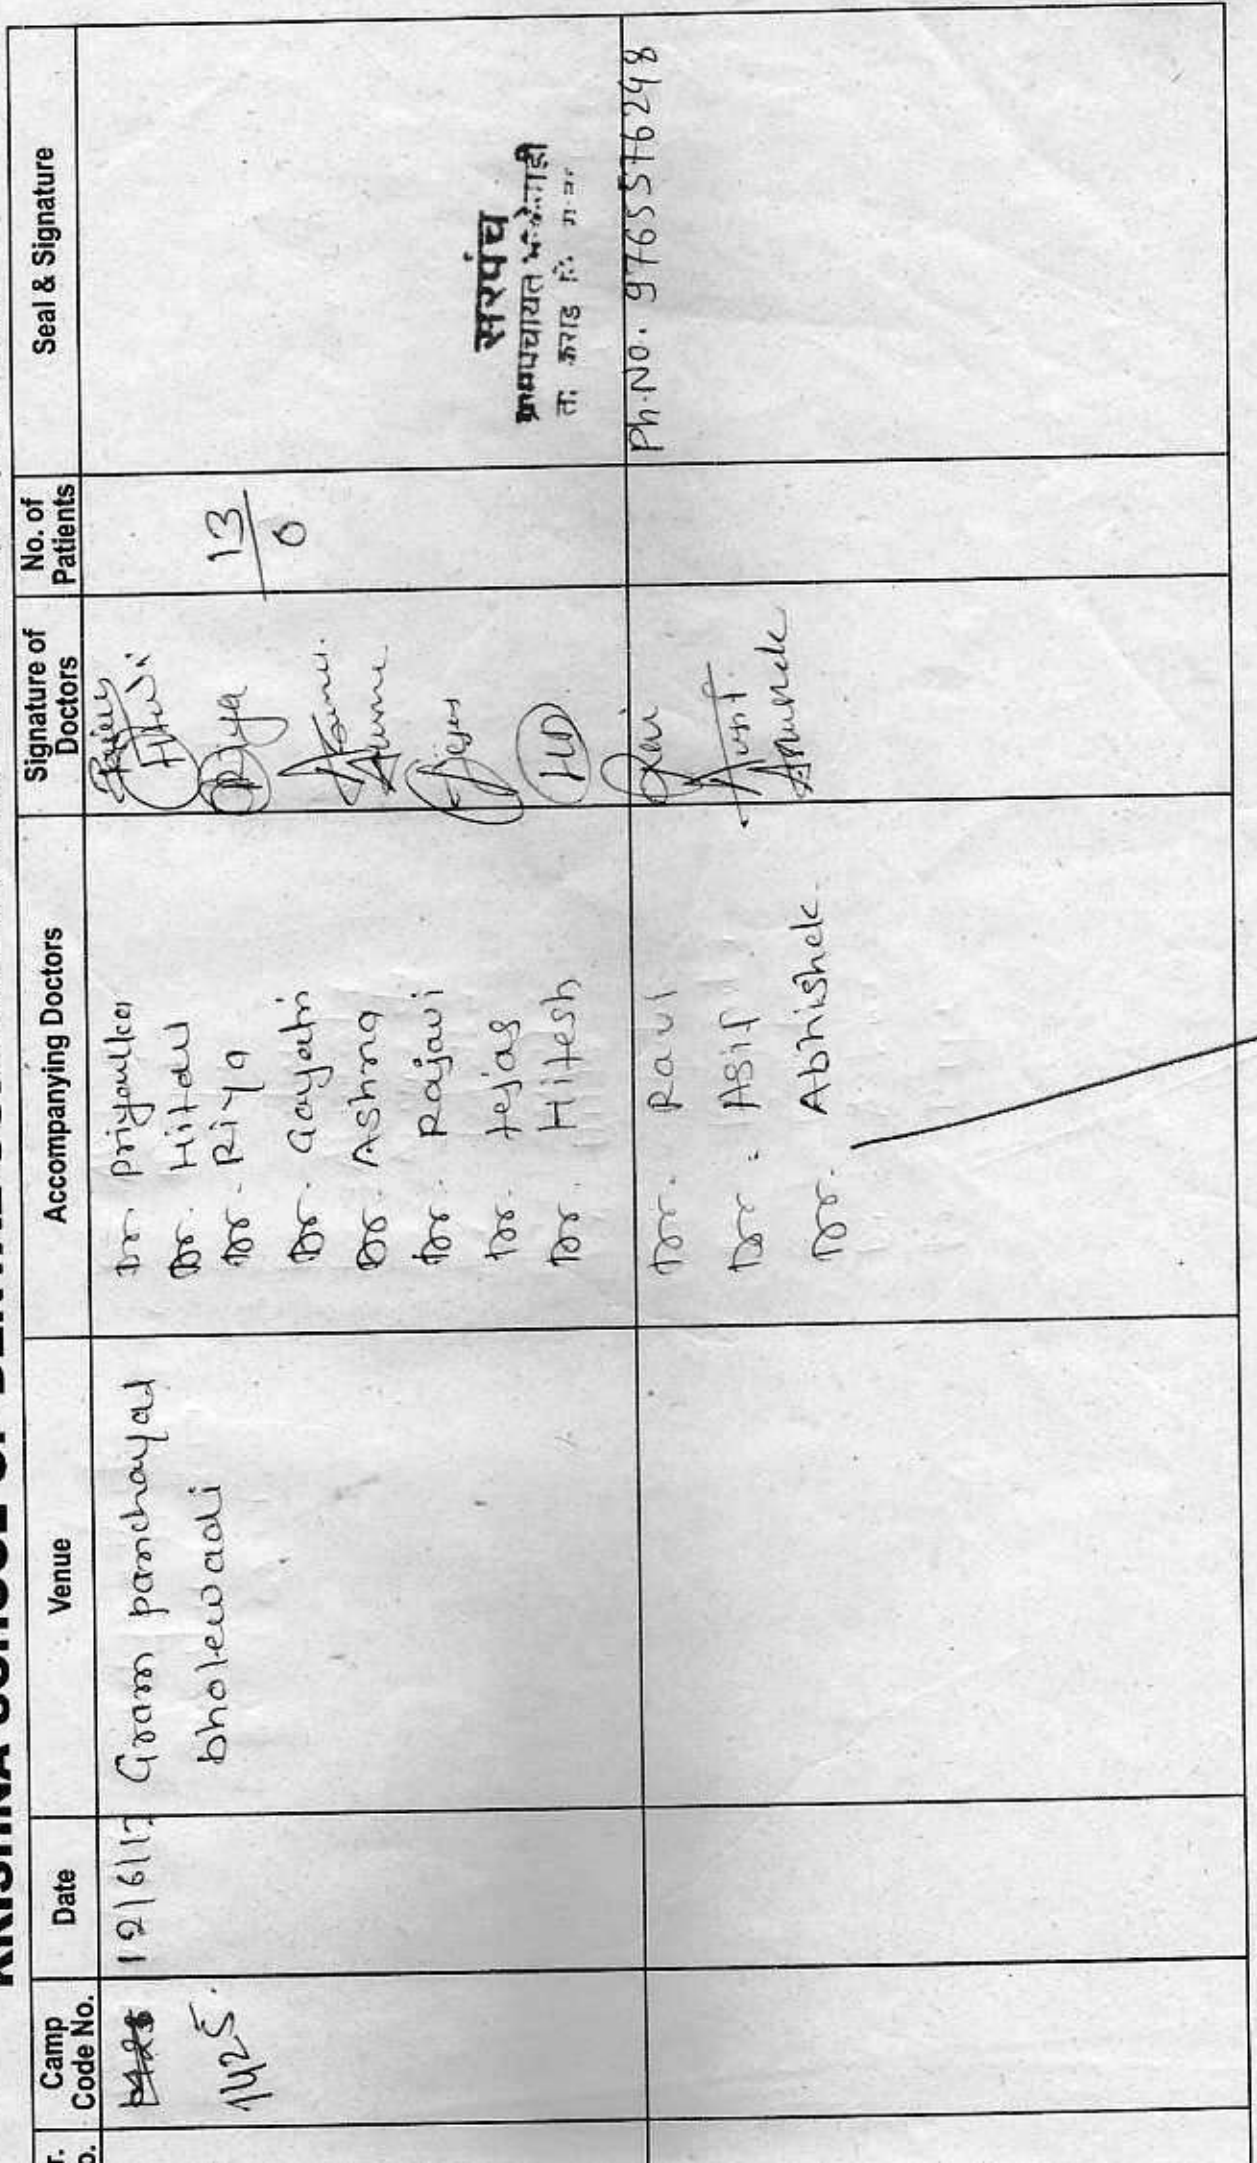 KRISHNA SCHOOL OF DENTAL
Camp Code No.
Date
Venue
Accompanying Doctors
Signature of Doctors
No. of Patients
Seal & Signature
1425.
12/6/17
Gram panchayat
bholewadi
Dr Priyanka
Dr. Hital
Dr. Riya
Dr. Gayatri
Dr. Ashna
Dr. Rajavi
Dr. tejas
Dr. Hitesh
Riya
HD
13
0
सरपंच
ग्रामपंचायत
ता. कराड जि.
Dr. Ravi
Dr. Asif
Dr. Abhishek.
Ravi
Asif
Abhishek
Ph.No. 9765576248